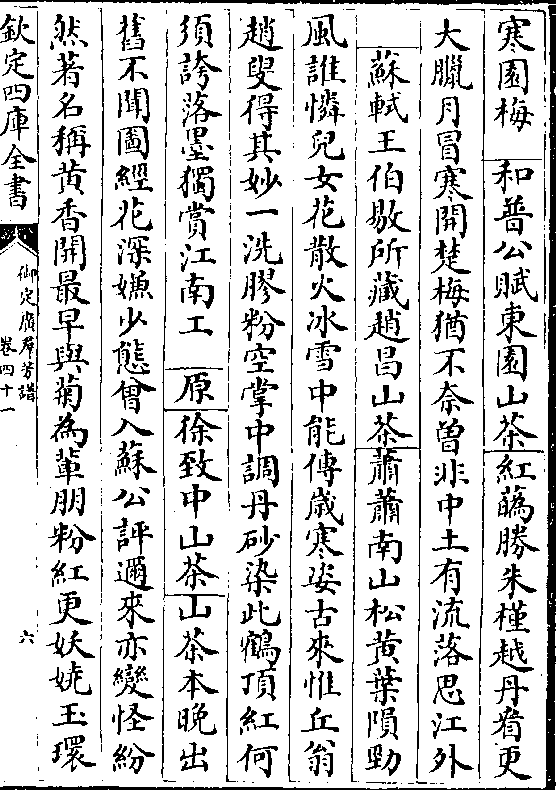 寒園梅　和普公賦東園山茶紅蘤勝朱槿越丹看更
大臘月冒寒開楚梅猶不奈曽非中土有流落思江外
蘇軾王伯敭所藏趙昌山茶蕭蕭南山松黄葉隕勁
風誰憐兒女花散火冰雪中能傳歲寒姿古來惟丘翁
趙叟得其妙一洗膠粉空掌中調丹砂染此鶴頂紅何
須誇落墨獨賞江南工　原徐致中山茶山茶本晚出
舊不聞圖經花深嫌少態曾入蘇公評邇來亦變怪紛
然著名稱黄香開最早與菊為輩朋粉紅更妖嬈玉環
欽定四庫全書
御定廣羣芳譜
卷四十一
六